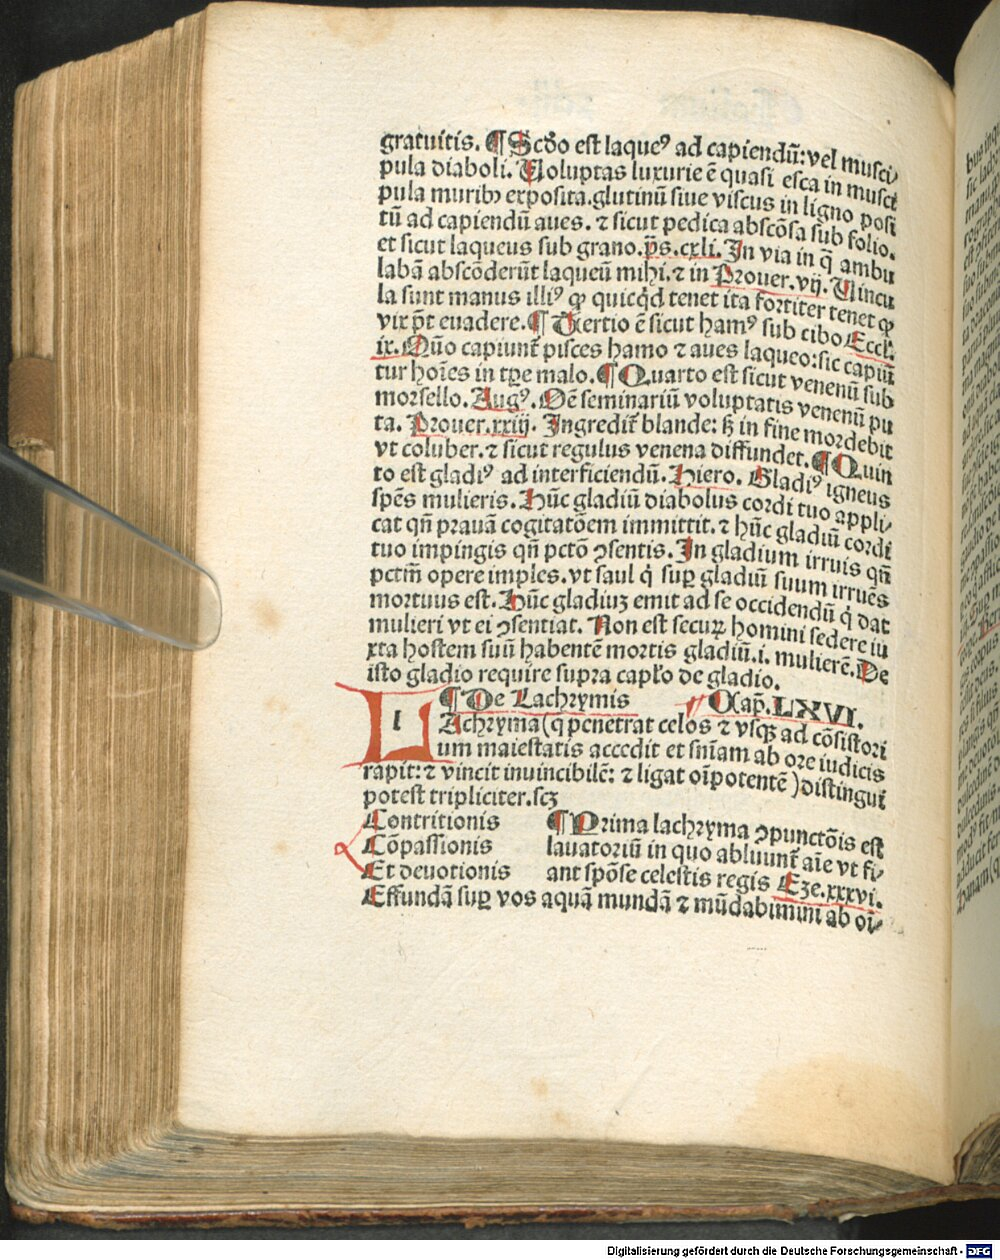 gratuitis. ¶ Scďo est laqueꝰ ad capiendū: vel musci
pula diaboli. Uoluptas luxurie ē quasi esca in musci
pula muribꝫ exposita. glutinū siue viscus in ligno posi
tū ad capiendū aues. ⁊ sicut pedica abscōsa sub folio.
et sicut laqueus sub grano. p̄s. cxli. In via in q̄ ambu
labā abscōderūt laqueū mihi. ⁊ in Prouer. vij. Uincu
la sunt manus illiꝰ ꝙ quicq̇d tenet ita fortiter tenet ꝙ
vix pt̄ euadere. ¶ Tertio ē sicut hamꝰ sub cibo Eccl.
ix. Quō capiunt̄ pisces hamo ⁊ aues laqueo: sic capiūt
tur hoīes in tꝑe malo. ¶ Quarto est sicut venenū sub
morsello. Augꝰ. Oē seminariū voluptatis venenū pu
ta. Prouer. xxiij. Ingredit̄ blande: sꝫ in fine mordebit
vt coluber. ⁊ sicut regulus venena diffundet. ¶ Quin
to est gladiꝰ ad interficiendū. Hiero. Gladiꝰ igneus
spēs mulieris. Hūc gladiū diabolus cordi tuo appli⸗
cat qn̄ prauā cogitatōem immittit. ⁊ hūc gladiū cordi
tuo impingis qn̄ pctō ꝯsentis. In gladium irruis qn̄
pctm̄ opere imples. vt saul q̇ suꝑ gladiū suum irruēs
mortuus est. Hūc gladiuꝫ emit ad se occidendū q̇ dat
mulieri vt ei ꝯsentiat. Non est securꝝ homini sedere iu
xta hostem suū habentē mortis gladiū. i. mulierē. De
isto gladio require supra capłο de gladio.
¶ De Lachrymis Cap. LXVI.
l Achryma (q penetrat celos ⁊ vsqꝫ ad cōsistori
um maiestatis accedit et sn̄iam ab ore iudicis
rapit: ⁊ vincit inuincibilē: ⁊ ligat oīpotentē) distingui
potest tripliciter. scꝫ
Contritionis
Cōpassionis
Et deuotionis
¶ Prima lachryma ꝯpunctōis est
lauatoriū in quo abluunt̄ aīe vt fi⸗
ant spōse celestis regis Eze. xxxvi.
Effundā suꝑ vos aquā mundā ⁊ mūdabimini ab oī⸗
Digitalisierung gefördert durch die Deutsche Forschungsgemeinschaft - DFG